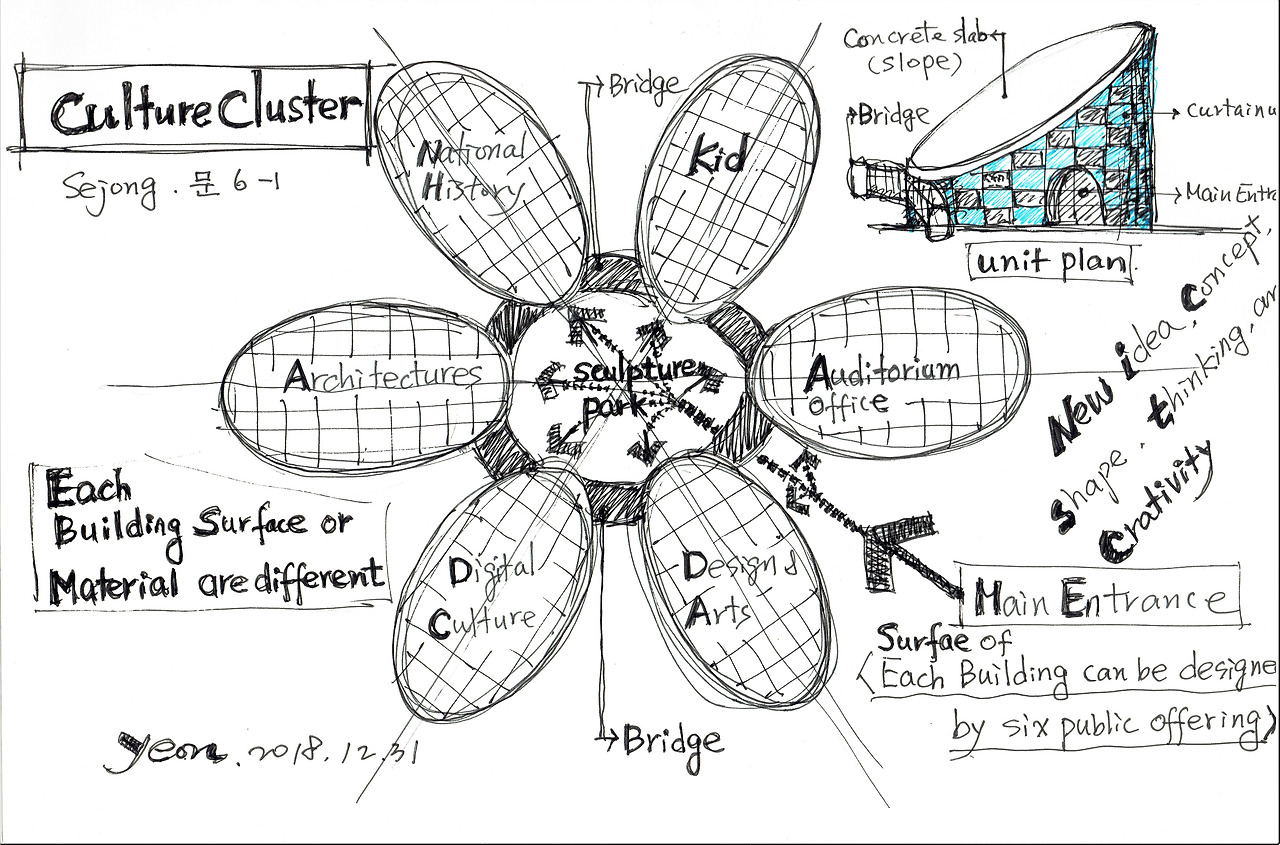 Culture Cluster
Sejong . 문 6-1
National
History
Bridge
Kid
Concrete slab
(slope)
Bridge
Curtainw
Main Entra
unit plan
Architectures
sculpture
park
Auditorium
office
New idea, Concept,
Shape. thinking. an
Crativity
Each
Building Surface or
Material are different
Digital
Culture
Design &
Arts
Main Entrance
Surfae of
(Each Building can be designe
by six public offering)
Bridge
yeon. 2018. 12. 31